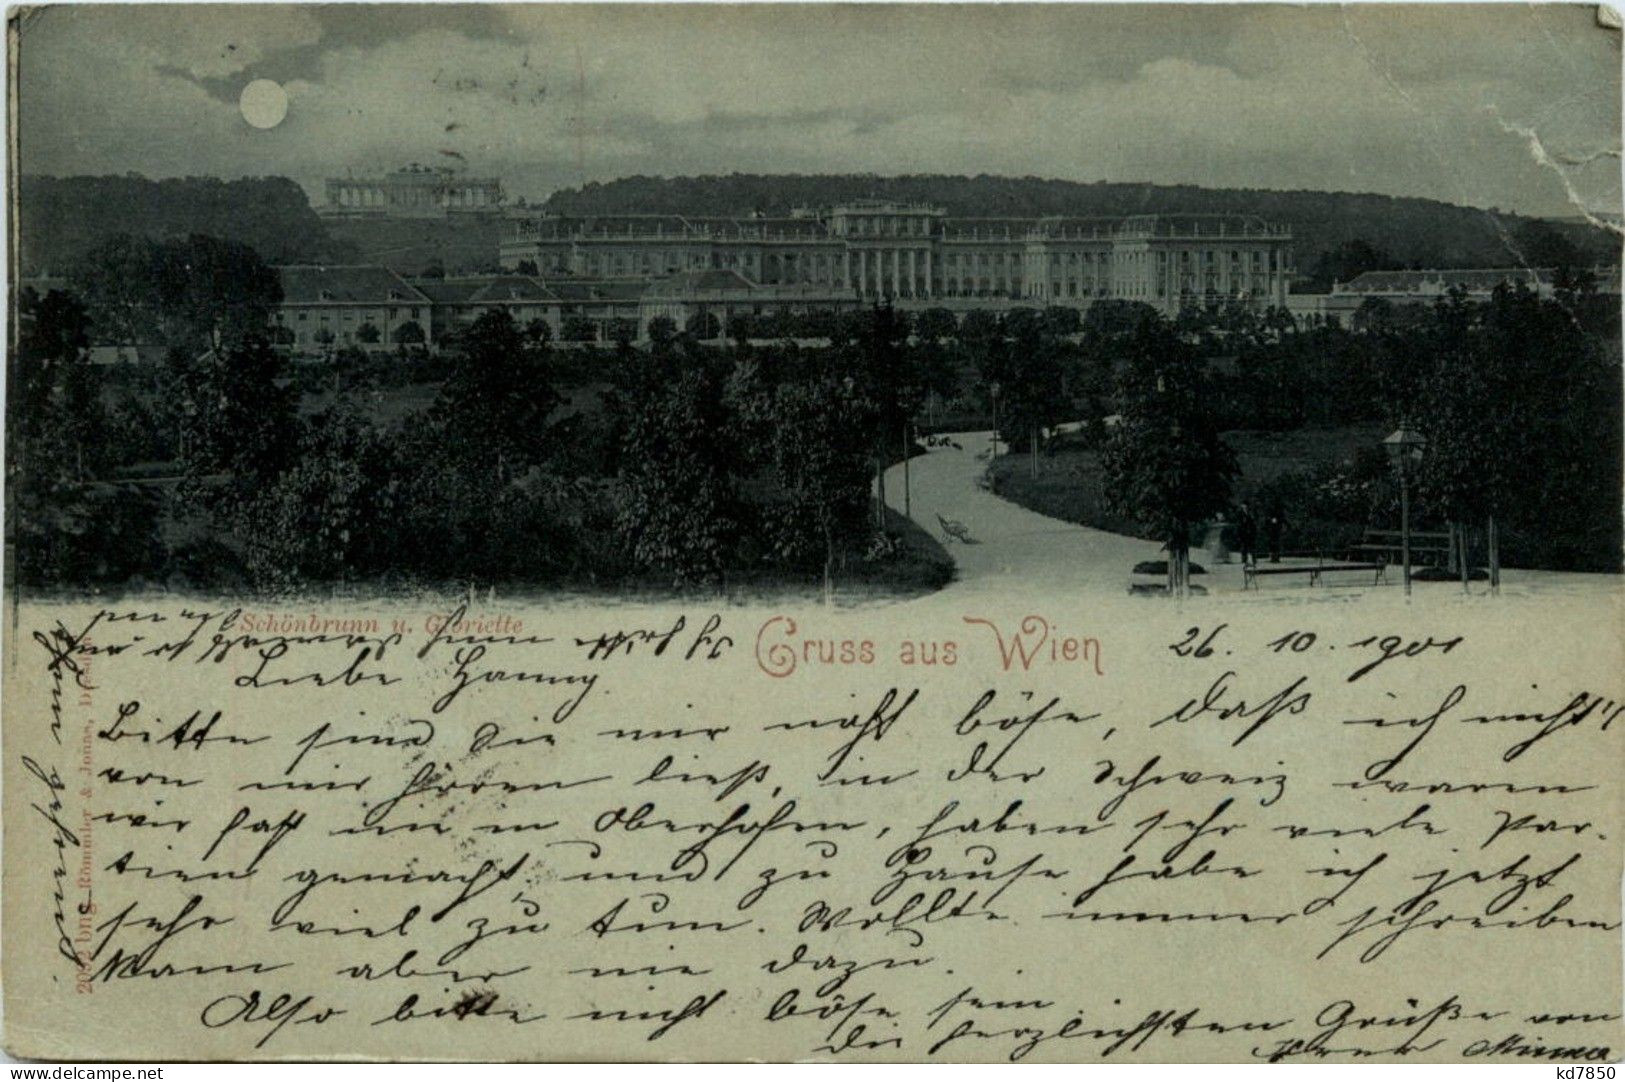 Schönbrunn u. Gloriette
Gruss aus Wien
26. 10. 1901
Liebe Hanny
Bitte sind Sie mir nicht böse, daß ich nichts
von mir hören ließ, in der Schweiz waren
wir fast nie in Oberhofen, haben sehr viele Par-
tien gemacht, und zu Hause habe ich jetzt
sehr viel zu tun. Wollte immer schreiben
kam aber nie dazu.
Also bitte nicht böse sein.
Die herzlichsten Grüße von
Ihrer Minna
schon gefreut.
Römmler & Jonas, Dresden
kd7850